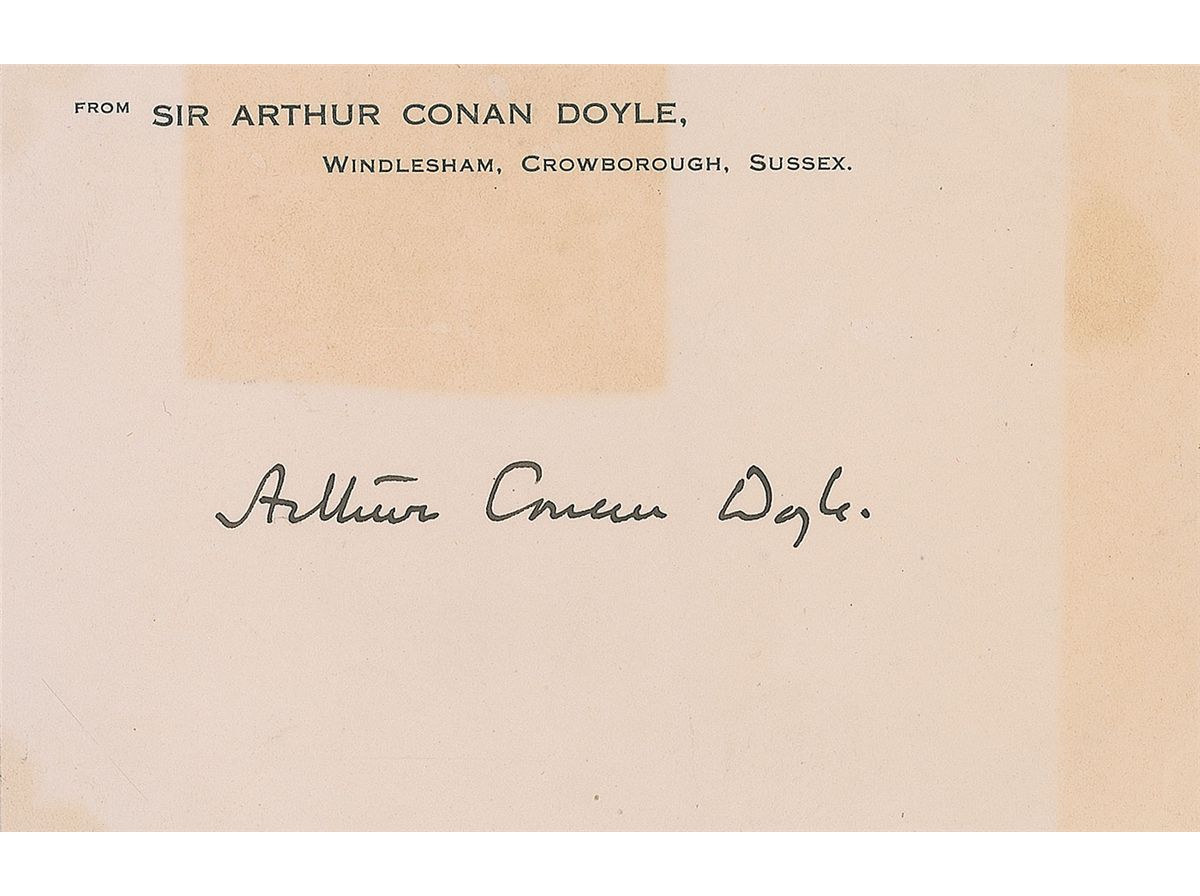 FROM SIR ARTHUR CONAN DOYLE,
WINDLESHAM, CROWBOROUGH, SUSSEX.
Arthur Conan Doyle.